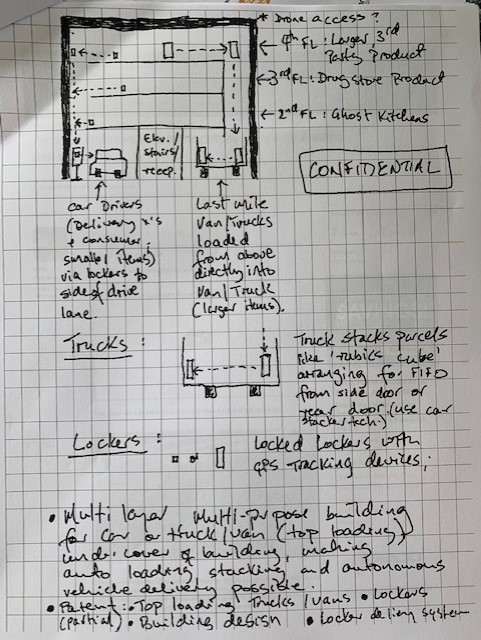 * Drone access?
← 4th FL: Larger 3rd
Party Product
← 3rd FL: Drug store Product
← 2nd FL: Ghost Kitchens
Elev./
stairs/
recep.
CONFIDENTIAL
car Drivers
(Delivery
& consumer,
smaller items)
via lockers to
side of drive
lane.
Last mile
Van/Trucks
loaded
from above
directly into
Van/Truck
(larger items).
Trucks :
Truck stacks parcels
like 'rubics cube'
arranging for FIFO
from side door or
rear door. (use car
stacker tch.)
Lockers :
Locked Lockers with
GPS Tracking devices;
• Multi layer Multi-purpose building
for car or truck/van (top loading)
under cover of building, making
auto loading stacking and autonomous
vehicle delivery possible.
• Patent: • Top loading Trucks/vans • Lockers
(partial) • Building design • Locker delivery system